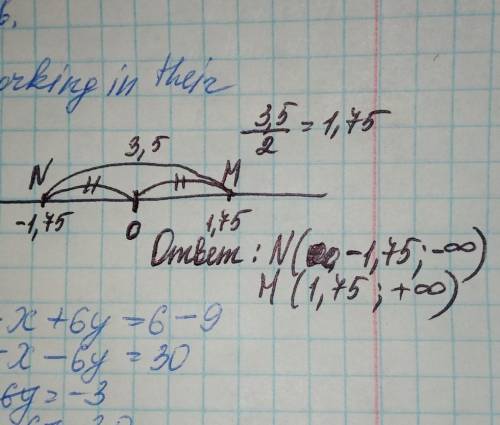 orking in their
3,5
3,5/2 = 1,75
N M
-1,75 0 1,75
Ответ: N( -1,75; -∞)
M(1,75; +∞)
-x + 6y = 6 - 9
-x - 6y = 30
6y = -3